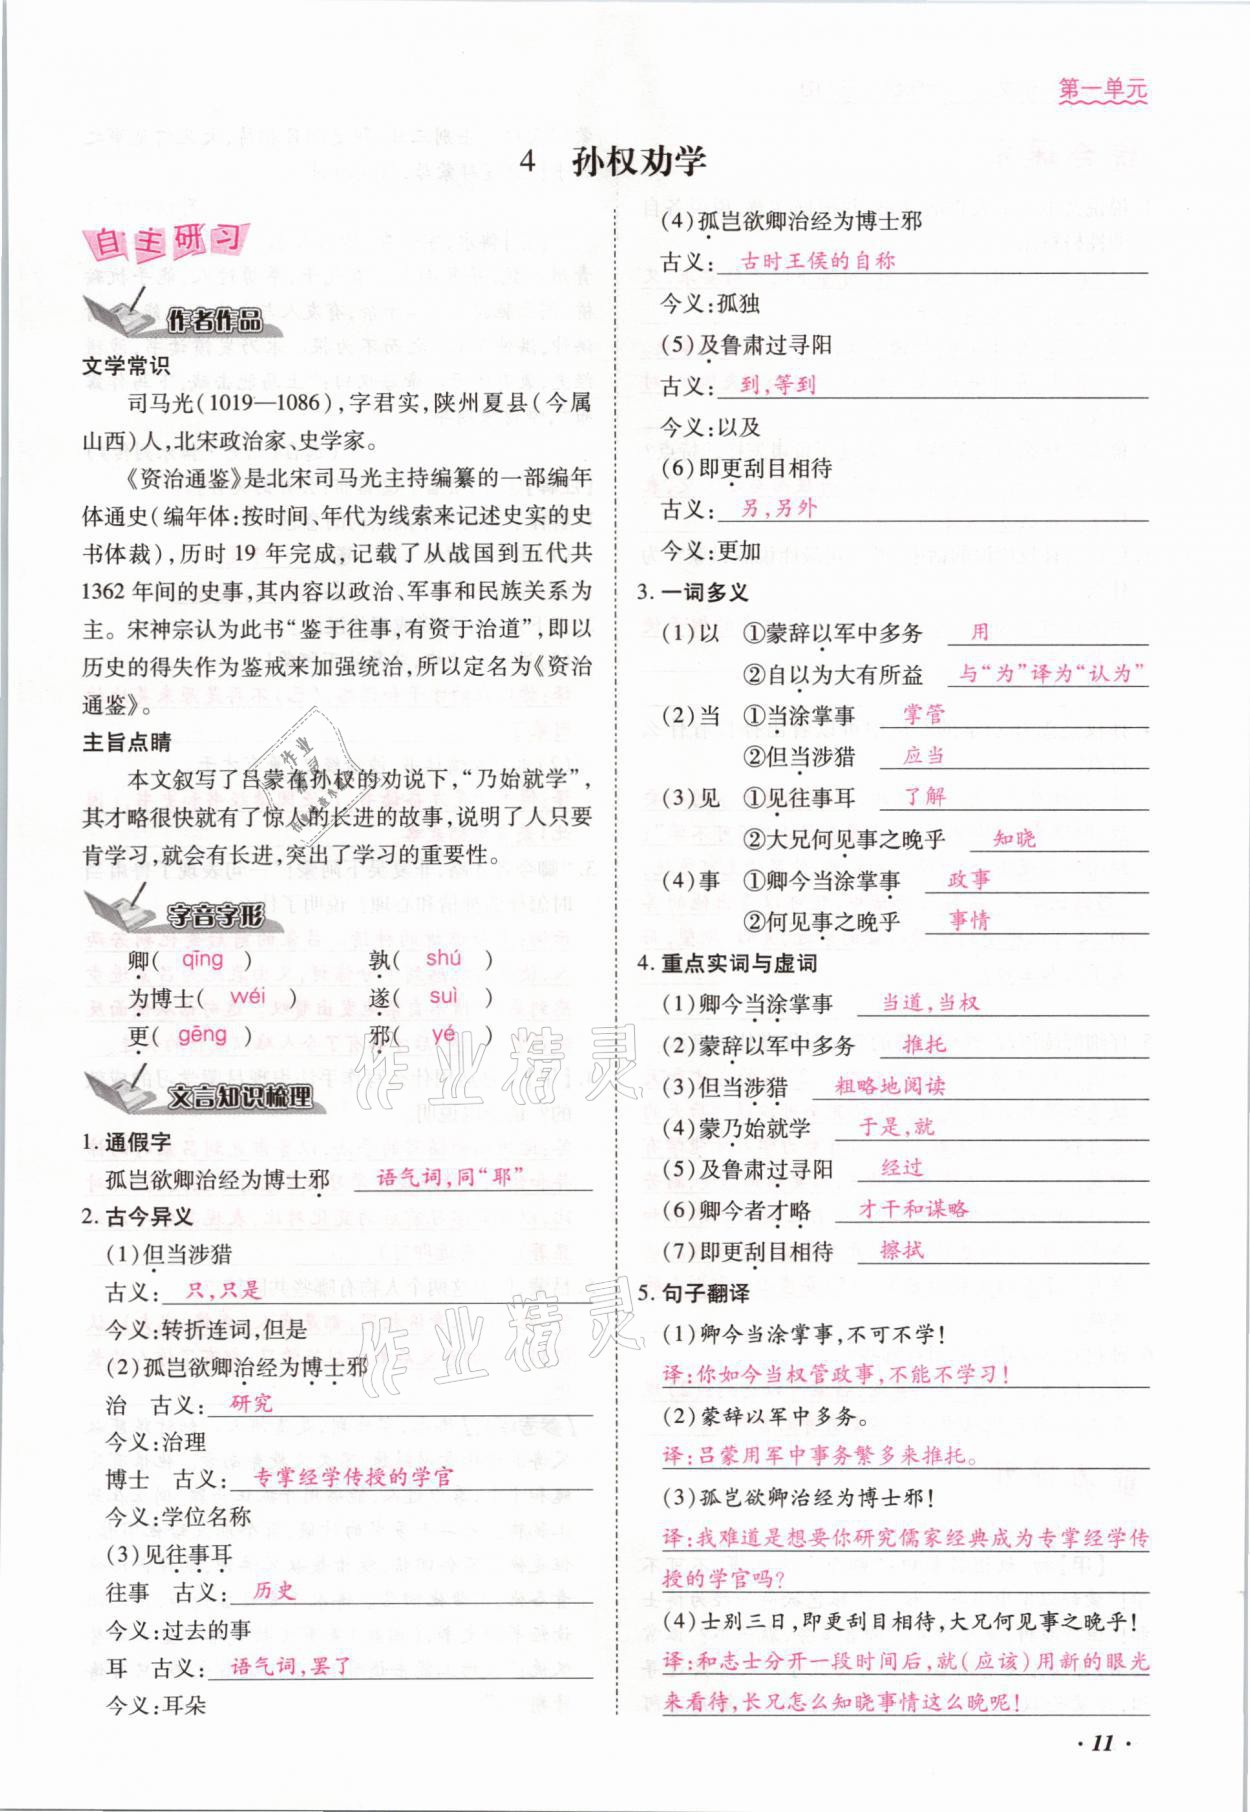 第一单元
4 孙权劝学
自主研习
作者作品
文学常识
司马光(1019—1086),字君实,陕州夏县(今属
山西)人,北宋政治家、史学家。
《资治通鉴》是北宋司马光主持编纂的一部编年
体通史(编年体:按时间、年代为线索来记述史实的史
书体裁),历时 19 年完成,记载了从战国到五代共
1362 年间的史事,其内容以政治、军事和民族关系为
主。宋神宗认为此书“鉴于往事,有资于治道”,即以
历史的得失作为鉴戒来加强统治,所以定名为《资治
通鉴》。
主旨点睛
本文叙写了吕蒙在孙权的劝说下,“乃始就学”,
其才略很快就有了惊人的长进的故事,说明了人只要
肯学习,就会有长进,突出了学习的重要性。
字音字形
卿( qīng ) 孰( shú )
为博士( wéi ) 遂( suì )
更( gēng ) 邪( yé )
文言知识梳理
1. 通假字
孤岂欲卿治经为博士邪 语气词,同“耶”
2. 古今异义
(1)但当涉猎
古义: 只,只是
今义:转折连词,但是
(2)孤岂欲卿治经为博士邪
治 古义: 研究
今义:治理
博士 古义: 专掌经学传授的学官
今义:学位名称
(3)见往事耳
往事 古义: 历史
今义:过去的事
耳 古义: 语气词,罢了
今义:耳朵
(4)孤岂欲卿治经为博士邪
古义: 古时王侯的自称
今义:孤独
(5)及鲁肃过寻阳
古义: 到,等到
今义:以及
(6)即更刮目相待
古义: 另,另外
今义:更加
3. 一词多义
(1)以 ①蒙辞以军中多务 用
②自以为大有所益 与“为”译为“认为”
(2)当 ①当涂掌事 掌管
②但当涉猎 应当
(3)见 ①见往事耳 了解
②大兄何见事之晚乎 知晓
(4)事 ①卿今当涂掌事 政事
②何见事之晚乎 事情
4. 重点实词与虚词
(1)卿今当涂掌事 当道,当权
(2)蒙辞以军中多务 推托
(3)但当涉猎 粗略地阅读
(4)蒙乃始就学 于是,就
(5)及鲁肃过寻阳 经过
(6)卿今者才略 才干和谋略
(7)即更刮目相待 擦拭
5. 句子翻译
(1)卿今当涂掌事,不可不学!
译:你如今当权管政事,不能不学习!
(2)蒙辞以军中多务。
译:吕蒙用军中事务繁多来推托。
(3)孤岂欲卿治经为博士邪!
译:我难道是想要你研究儒家经典成为专掌经学传
授的学官吗?
(4)士别三日,即更刮目相待,大兄何见事之晚乎!
译:和志士分开一段时间后,就(应该)用新的眼光
来看待,长兄怎么知晓事情这么晚呢!
· 11 ·
作业精灵
作业精灵